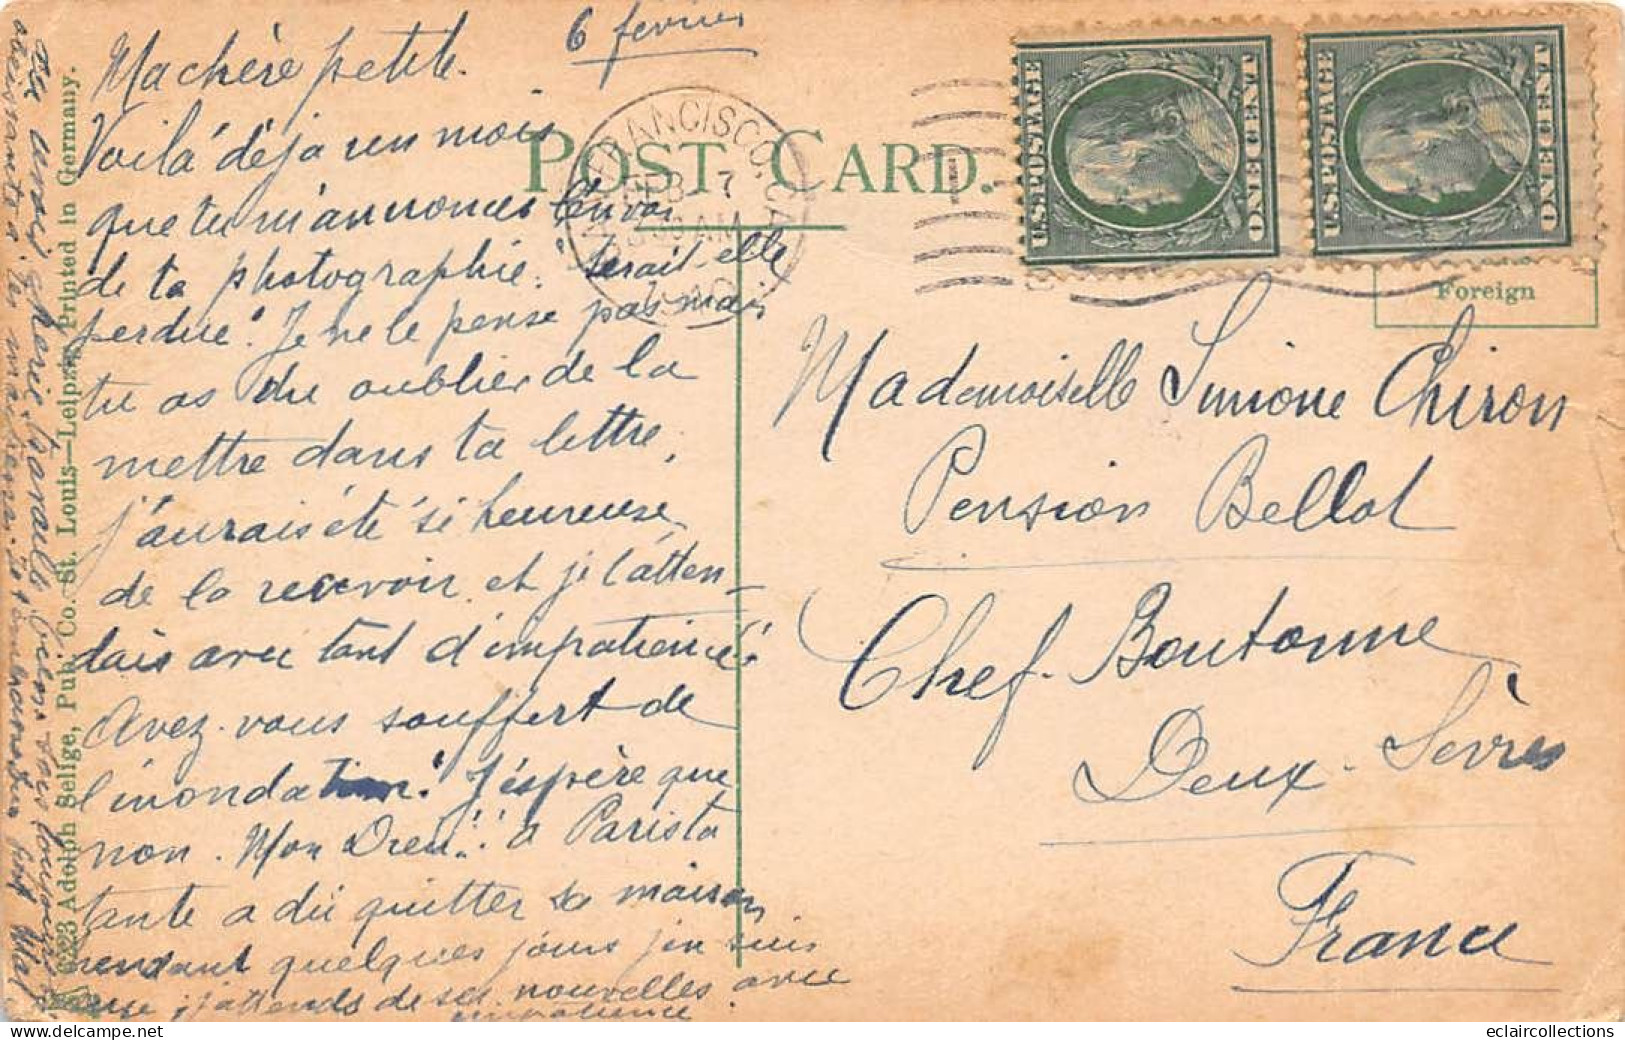 6 février
Ma chère petite.
Voilà déjà un mois
que tu m'annonces l'envoi
de ta photographie. Serait-elle
perdue? Je ne le pense pas mais
tu as du oublier de la
mettre dans ta lettre,
j'aurais été si heureuse
de la recevoir et je l'atten-
dais avec tant d'impatience!
Avez-vous souffert de
l'inondation? J'espère que
non. Mon Dieu!! à Paris ta
tante a dû quitter sa maison
pendant quelques jours j'en suis
; j'attends de ses nouvelles avec
impatience.
chérie, travaille bien, sois toujours
ta marraine
POST CARD.
FRANCISCO, CA
FEB 7
U.S. POSTAGE
ONE CENT
U.S. POSTAGE
ONE CENT
Foreign
Mademoiselle Simone Chiron
Pension Bellot
Chef-Boutonne
Deux-Sèvres
France
6223 Adolph Selige, Pub. Co. St. Louis—Leipzig Printed in Germany.
eclaircollections